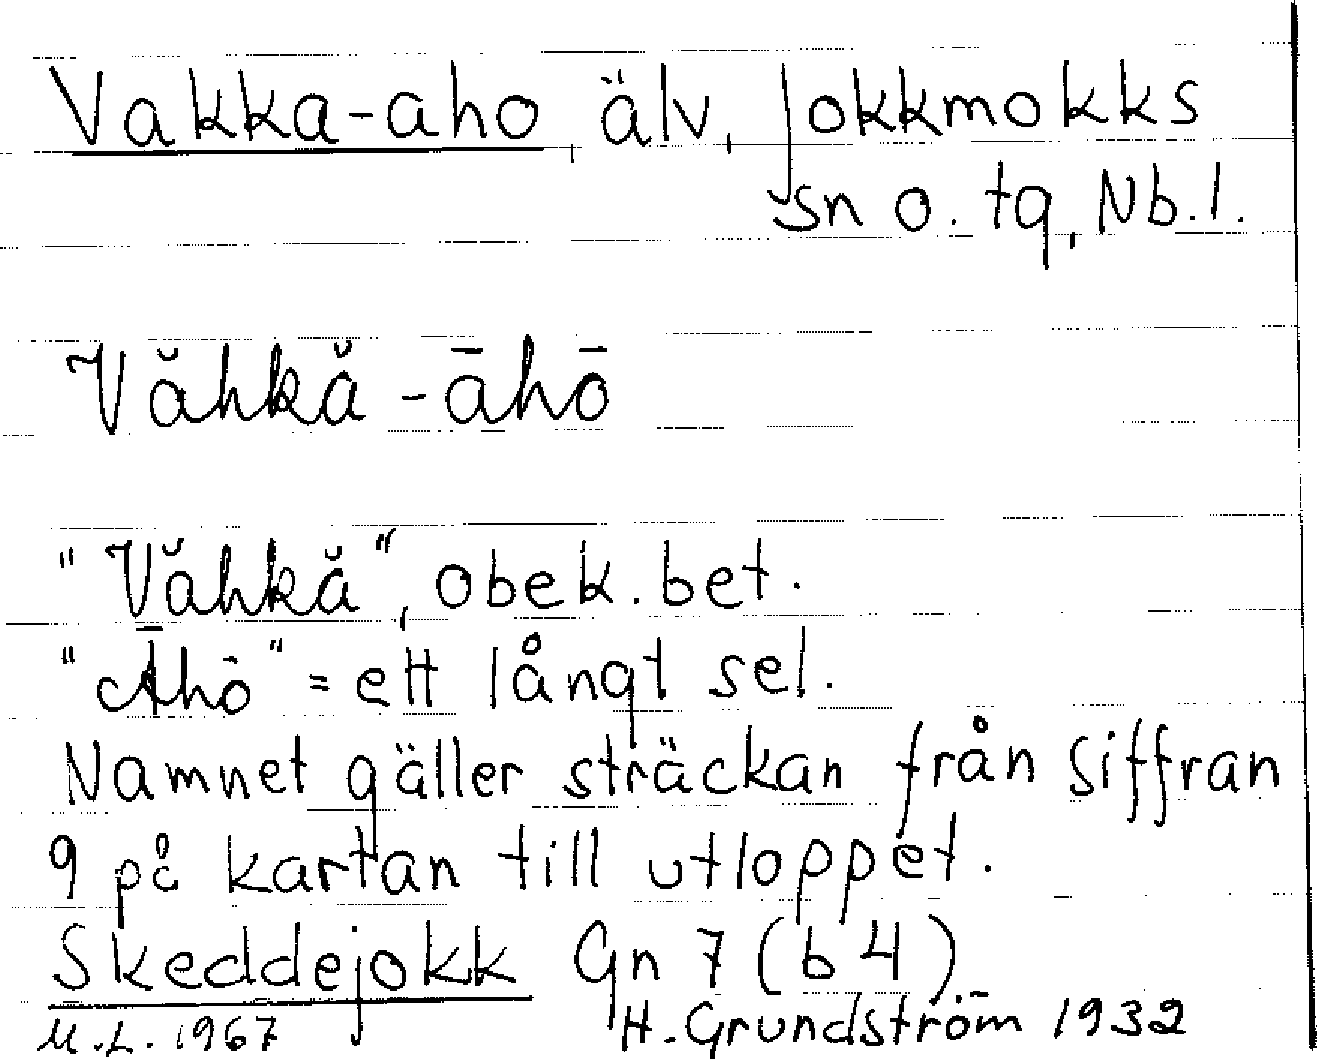 Vakka-aho, älv, Jokkmokks
sn o. tg, Nb.l.
Văhkă-āhō
"Văhkă", obek. bet.
"Āhō" = ett långt sel.
Namnet gäller sträckan från siffran
9 på kartan till utloppet.
Skeddejokk Gn 7 (b 4)
M.L. 1967 H. Grundström 1932